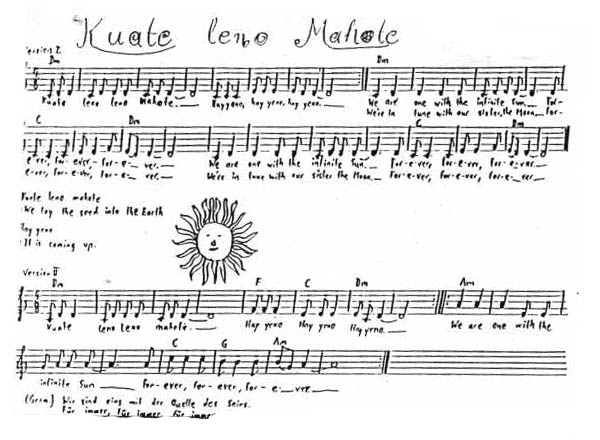 Kuate leno Mahote
Version I
Dm Dm
Kuate leno leno Mahote. Hay yano, hay yano, hay yano. We are one with the infinite Sun For-
We're in tune with our sister, the Moon For-
C Dm C Dm
e-ver, for-ever, - for-e- ver. We are one with the infinite Sun For-e-ver, for-ever, for-e-ver.
e-ver, for-e-ver, for-e- ver. We're in tune with our sister the Moon. For-e-ver, for-e-ver, for-e-ver.
leno mahote
We lay the seed into the Earth
Hay yano
It is coming up.
Version II
Dm F C Dm Am
Kuate leno leno mahote. Hay yano Hay yano Hay yano. We are one with the
C G Am
infinite Sun for-ever, for-ever, for-e-ver.
(Germ.) Wir sind eins mit der Quelle des Seins.
Für immer, für immer für immer